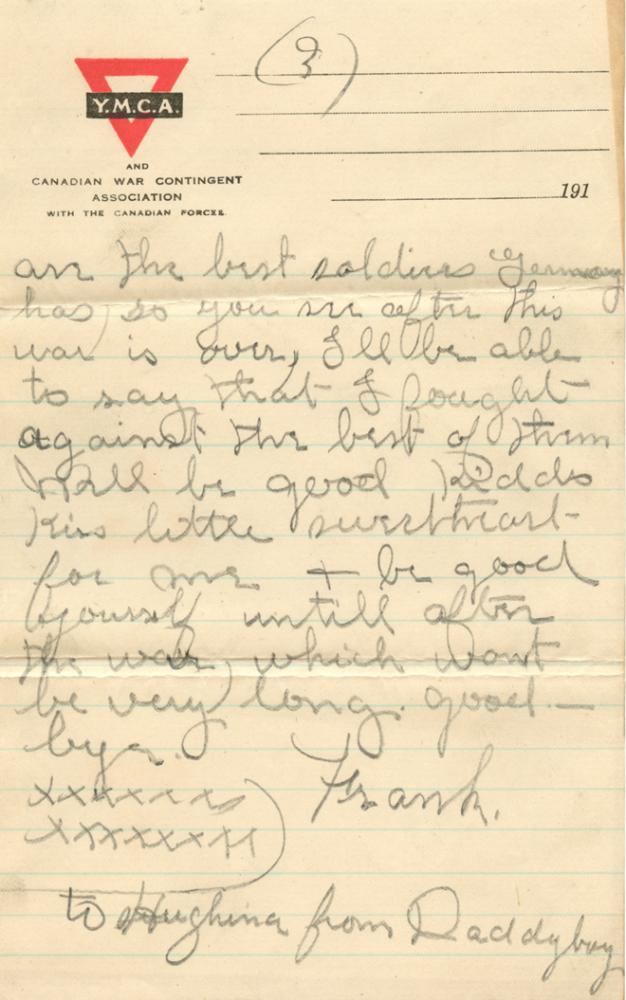 (3)
Y.M.C.A.
AND
CANADIAN WAR CONTINGENT
ASSOCIATION
WITH THE CANADIAN FORCES.
191
are the best soldiers Germany
has, so you see after this
war is over, I'll be able
to say that I fought
against the best of them
Well be good Kiddo
Kiss little sweetheart
for me + be good
yourself untill after
the war, which wont
be very long. good-
bye.
xxxxxxx Frank.
xxxxxxxxx
to Hughina from Daddyboy